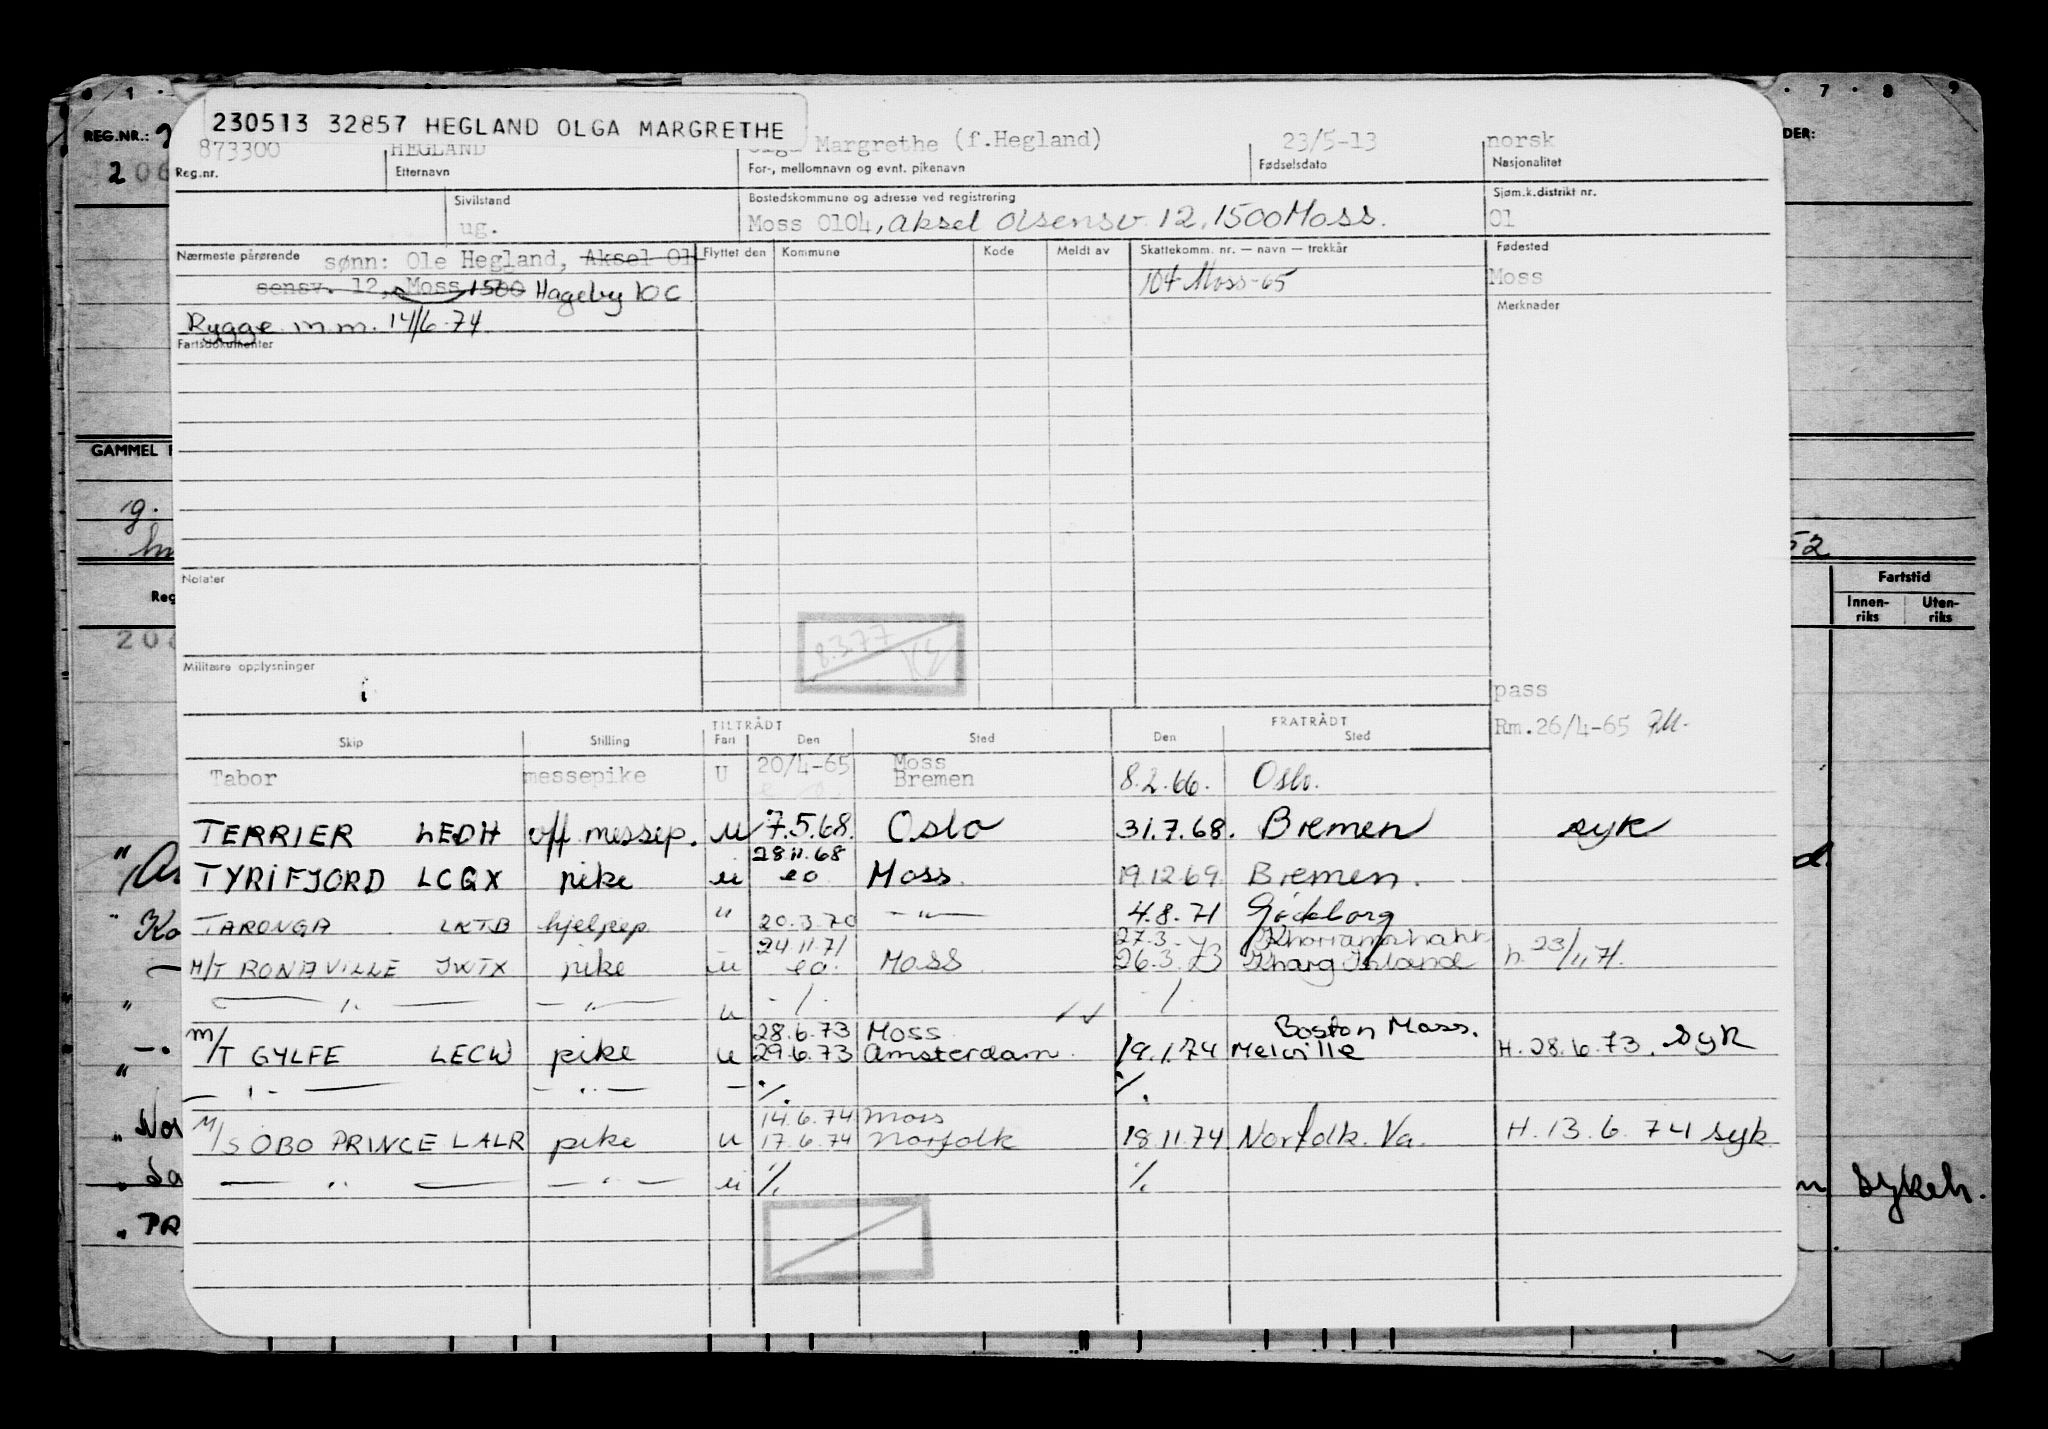 230513 32857 HEGLAND OLGA MARGRETHE
REG.NR.:
873300 HEGLAND Margrethe (f.Hegland) 23/5-13 norsk
Reg.nr. Etternavn For-, mellomnavn og evnt. pikenavn Fødselsdato Nasjonalitet
Sivilstand Bostedskommune og adresse ved registrering Sjøm.k.distrikt nr.
ug. Moss 0104, Aksel Olsensv. 12, 1500 Moss. 01
Nærmeste pårørende sønn: Ole Hegland, Aksel Ol- Flyttet den Kommune Kode Meldt av Skattekomm. nr. — navn — trekkår Fødested
sensv. 12, Moss 1500 Hageby 10 C 104 Moss-65 Moss
Rygge m.m. 14/6-74 Merknader
Fartsdokumenter
GAMMEL
Notater
Fartstid
Innen-riks Uten-riks
8.3.77
Militære opplysninger
pass
Rm.26/4-65
TILTRÅDT FRATRÅDT
Skip Stilling Fart Den Sted Den Sted
Tabor messepike U 20/4-65 Moss Bremen 8.2.66. Oslo.
TERRIER LEDH off messep. u 7.5.68. Oslo 31.7.68. Bremen syk
TYRIFJORD LCQX pike u 28.11.68 eo Moss. 19.12.69. Bremen.
TARONGA LKTB hjelpep " 20.3.70 —"— 4.8.71 Gøteborg
M/T RONAVILLE JWTX pike u 24.11.71 eo. Moss 27.3.73 26.3.73 Kharg Island h. 23/11 71.
— " — — " — u -/- -/-
M/T GYLFE LECW pike u 28.6.73 Moss 29.6.73 Amsterdam. 19.1.74 Boston Mass. Melville H. 28.6.73. syk
— " — — " — — ./. ./.
M/S OBO PRINCE LALR pike u 14.6.74 Moss 17.6.74 Norfolk 18.11.74 Norfolk. Va. H. 13.6.74 syk
— " — — " — u ./. ./.
sykeh.